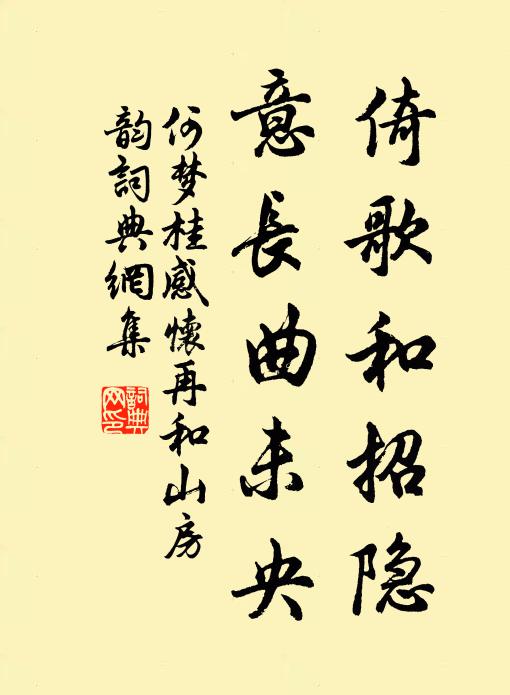 倚歌和招隐
意長曲未央
何梦桂感懷再和山房
韵詞典網集
詞典网印